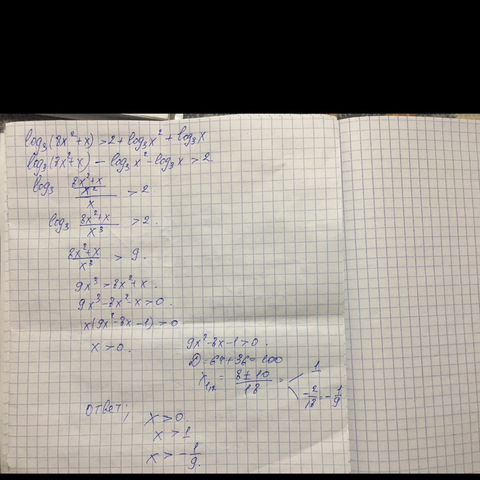 log₃(8x²+x) > 2 + log₃x² + log₃x
log₃(8x²+x) − log₃x² − log₃x > 2
log₃ ((8x²+x)/x²)/x > 2
log₃ (8x²+x)/x³ > 2.
(8x²+x)/x³ > 9.
9x³ > 8x²+x.
9x³−8x²−x>0.
x(9x²−8x−1)>0.
x>0. 9x²−8x−1>0.
D=64+36=100
x₁,₂ = (8±10)/18 = 1
−2/18 = −1/9
Ответ;
x>0
x>1
x>−1/9.